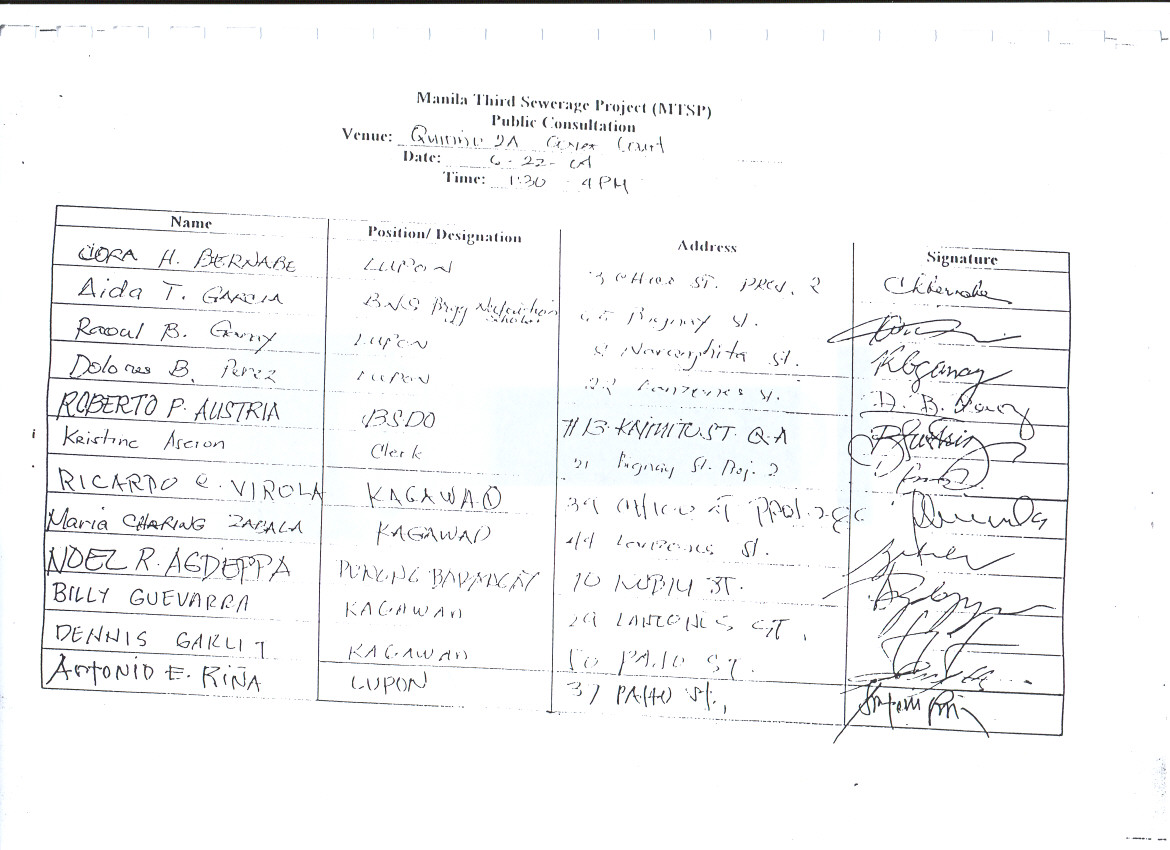 Manila Third Sewerage Project (MTSP)
Public Consultation
Venue: Quirino 2A Court
Date: 6-22-04
Time: 1:30 - 4 PM
Name Position/ Designation Address Signature
CORA H. BERNABE LUPON 3 CHICO ST. PROJ. 2
Aida T. GARCIA B.N.S Brgy Nutrition Scholar St.
Raoul B. LUPON St.
Dolores B. Perez LUPON 22 St.
ROBERTO P. AUSTRIA BSDO # 13 KAIMITO ST. Q-2-A
Kristine Ascion Clerk 21 St. Proj. 2
RICARDO C. VIROLA KAGAWAD 39 CHICO ST PROJ. 2 QC
Maria CHARING ZABALA KAGAWAD 44 St.
NOEL R. AGDEPPA PUNONG BARANGAY 10 ST.
BILLY GUEVARRA KAGAWAD 29 ST.
DENNIS GARLIT KAGAWAD 50 PAJO ST.
Antonio E. RIÑA LUPON 37 PAHO St.,